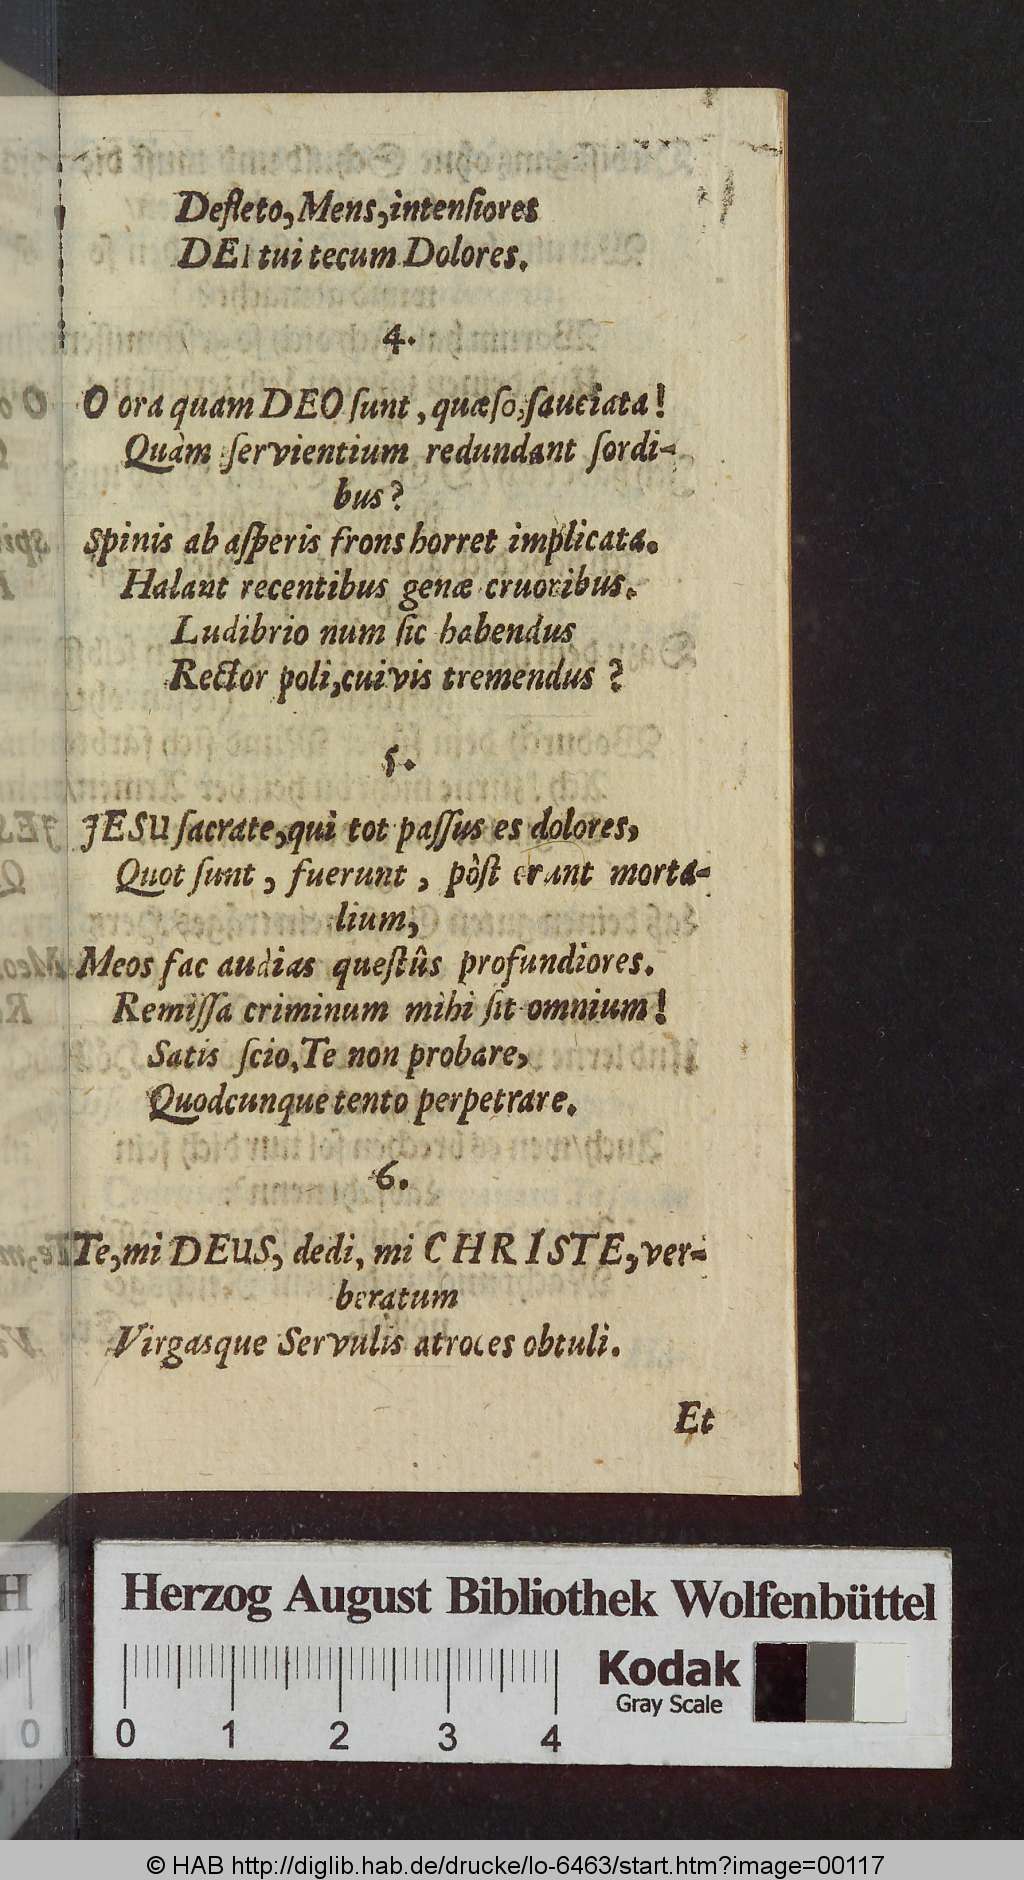 Defleto, Mens, intenſiores
DEI tui tecum Dolores.
4.
O ora quam DEO ſunt, quæſo, ſauciata!
Quàm ſervientium redundant ſordi-
bus?
Spinis ab aſperis frons horret implicata.
Halant recentibus genæ cruoribus.
Ludibrio num ſic habendus
Rector poli, cuivis tremendus?
5.
JESU ſacrate, qui tot paſſus es dolores,
Quot ſunt, fuerunt, pòſt erunt morta-
lium,
Meos fac audias queſtûs profundiores.
Remiſſa criminum mihi ſit omnium!
Satis ſcio, Te non probare,
Quodcunque tento perpetrare.
6.
Te, mi DEUS, dedi, mi CHRISTE, ver-
beratum
Virgasque Servulis atroces obtuli.
Et
Herzog August Bibliothek Wolfenbüttel
Kodak
Gray Scale
0 1 2 3 4
© HAB http://diglib.hab.de/drucke/lo-6463/start.htm?image=00117